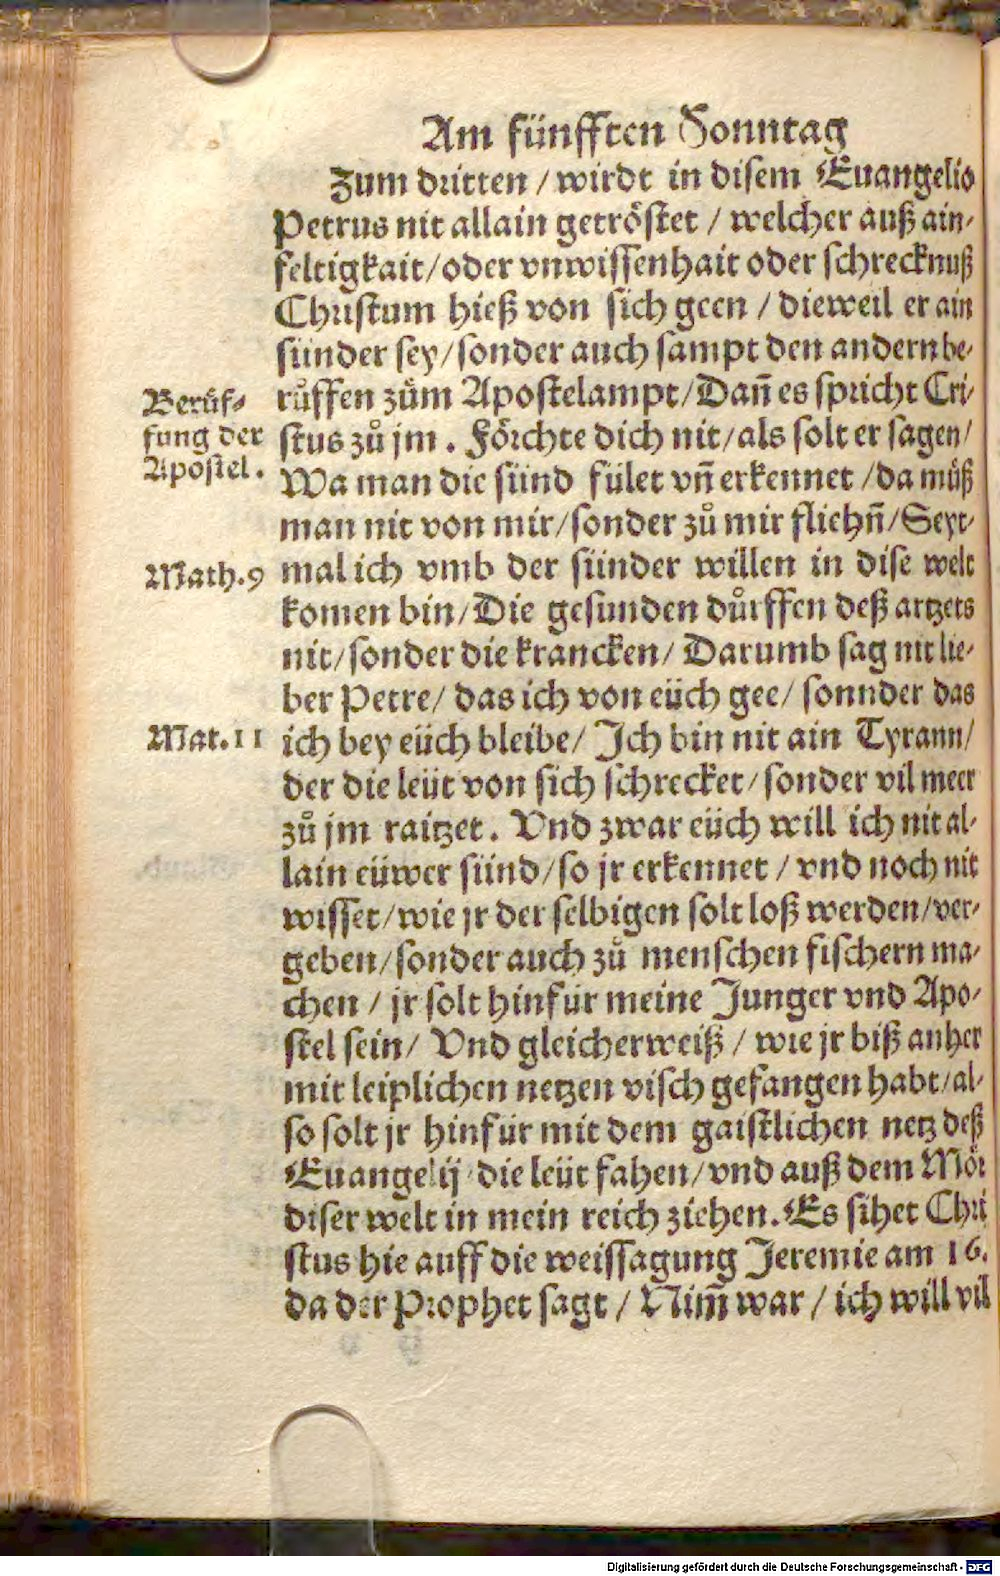 Am fünfften Sonntag
Zum dritten / wirdt in disem Euangelio
Petrus nit allain getröstet / welcher auß ain-
feltigkait/oder vnwissenhait oder schrecknuß
Christum hieß von sich geen / dieweil er ain
sünder sey/sonder auch sampt den andern be-
Berůf-
fung der
Apostel.
růffen zům Apostelampt/Dañ es spricht Cri-
stus zů jm . Förchte dich nit/als solt er sagen/
Wa man die sünd fület vñ erkennet /da můß
man nit von mir/sonder zů mir fliehñ/Seyt-
Math.9
mal ich vmb der sünder willen in dise welt
komen bin/Die gesunden důrffen deß artzets
nit/sonder die krancken/ Darumb sag nit lie-
ber Petre/ das ich von eüch gee/ sonnder das
Mat.11
ich bey eüch bleibe/ Ich bin nit ain Tyrann/
der die leüt von sich schrecket/sonder vil meer
zů jm raitzet. Vnd zwar eüch will ich nit al-
lain eüwer sünd/so jr erkennet / vnd noch nit
wisset/wie jr der selbigen solt loß werden/ver-
geben/sonder auch zů menschen fischern ma-
chen / jr solt hinfür meine Junger vnd Apo-
stel sein/ Vnd gleicherweiß / wie jr biß anher
mit leiplichen netzen visch gefangen habt/al-
so solt jr hinfür mit dem gaistlichen netz deß
Euangelij die leüt fahen/vnd auß dem Mör
diser welt in mein reich ziehen. Es sihet Chri
stus hie auff die weissagung Jeremie am 16.
da der Prophet sagt / Nim̃ war / ich will vil
Digitalisierung gefördert durch die Deutsche Forschungsgemeinschaft - DFG